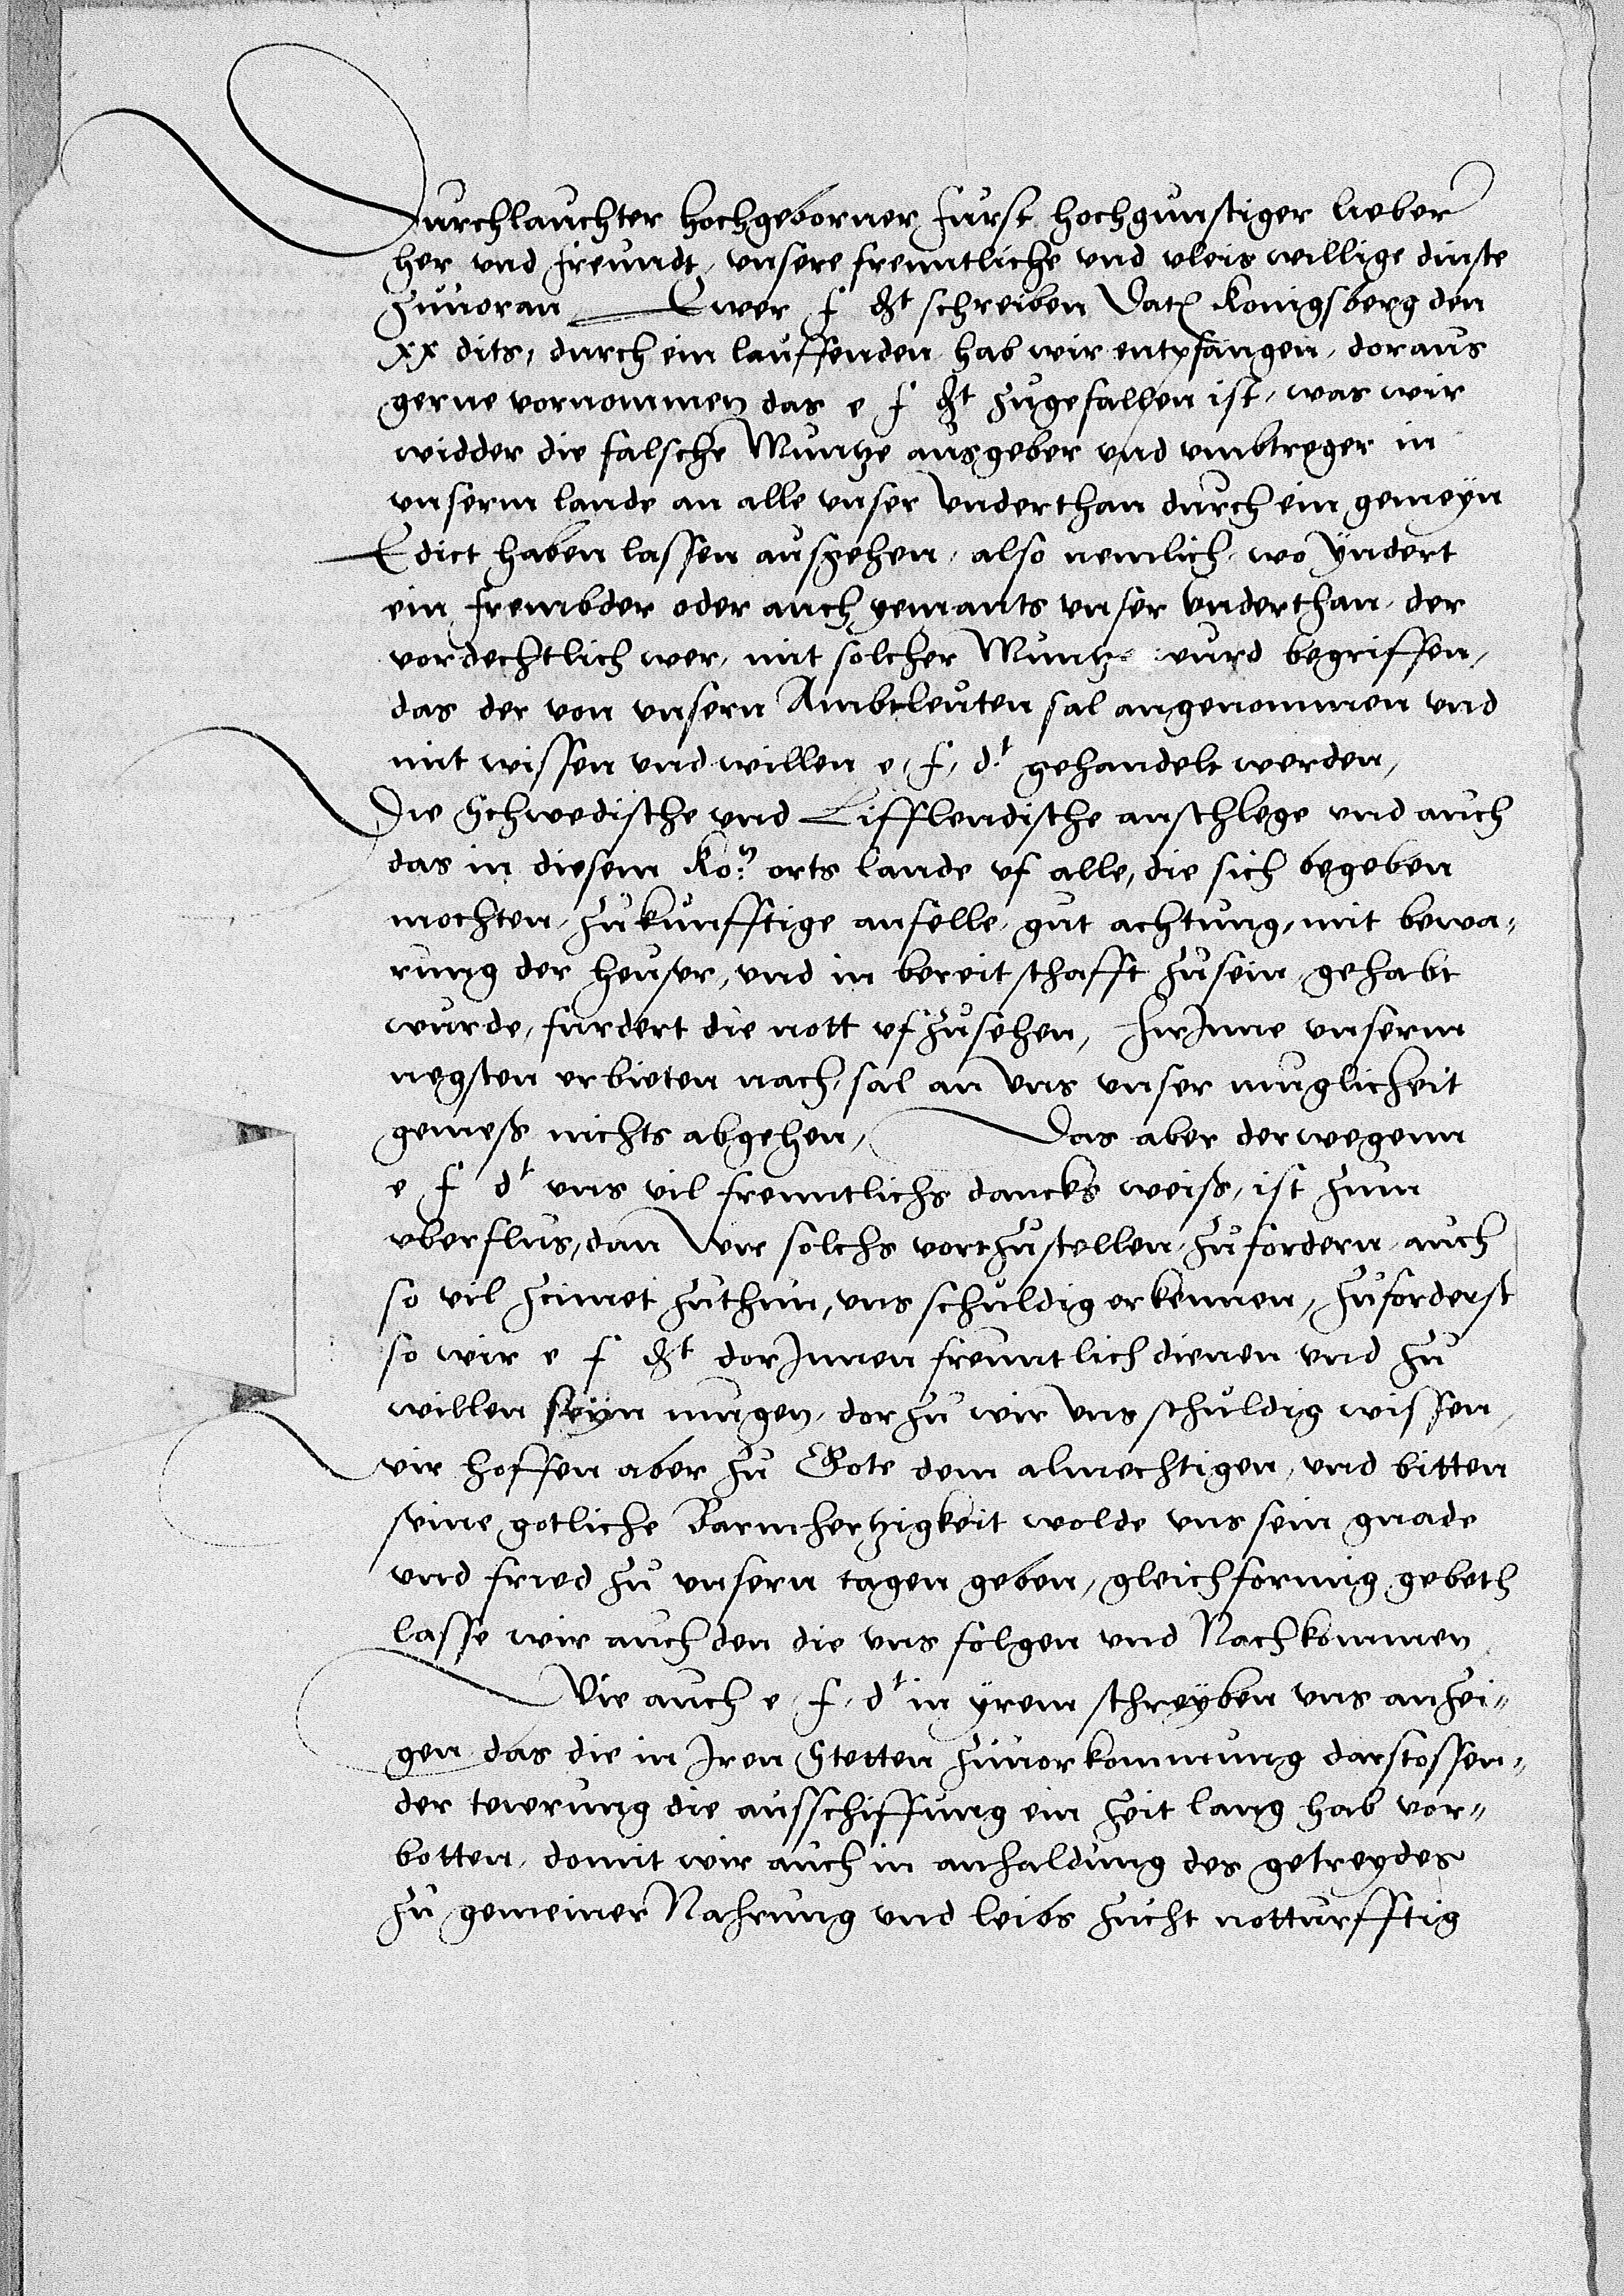 Durchlauchter hochgeborner furst hochgunstiger lieber
her vnd freundt, vnsere freuntliche vnd vleis willige dinste
zuuoran Ewer f dt schreiben Dat Konigsberg den
xx dits, durch ein lauffenden hab wir entpfangen, doraus
gerne vornommen das e f dt zugefallen ist, was wir
widder die falsche Muntze ausgeber vnd vmbtreger in
vnserm lande an alle vnser vnderthan durch ein gemeyn
Edict haben lassen ausgehen, also nemlich wo yndert
ein frembder oder auch yemants vnser vnderthan, der
vordechtlich wer, mit solcher Muntze wurd begriffen,
das der von vnsern Ambtleuten sal angenommen vnd
mit wissen vnd willen e, f, dt gehandelt werden,
Die Schwedische vnd Lifflendische anschlege vnd auch
das in diesem Kon orts lande vf alle, die sich begeben
mochten, zukunfftige anfelle, gut achtung, mit bewa,
rung der heuser, vnd in bereitschafft zusein, gehabt
wurde, furdert die nott vfzusehen, hirInne vnserm
negsten erbieten nach, sal an vns vnser muglicheit
gemeß nichts abgehen, Das aber derwegenn
e f dt vns vil freuntlichs dancks weiß, ist zum
vberflus, dan wir solchs vortzustellen, zufordern, auch
so vil zimet zuthun, vns schuldig erkennen, zuforderst
so wir e f dt dorInnen freuntlich dienen vnd zu
willen seyn mugen, dorzu wir vns schuldig wissen,
wir hoffen aber zu Gote dem almechtigen, vnd bitten
seine gotliche Barmhertzigkeit wolde vns sein gnade
vnd fried zu vnsern tagen geben, gleichformig gebeth
lasse wir auch den die vns folgen vnd Nachkommen
Wie auch e, f, dt in yrem schreyben vns anzei„
gen das die in Iren Stetten zuuorkommung darstossen„
der teuerung die ausschiffung ein zeit lang hab vor„
botten, domit wir auch in anhaldung des getreydes
zu gemeiner Nahrung vnd leibs zucht notturfftig